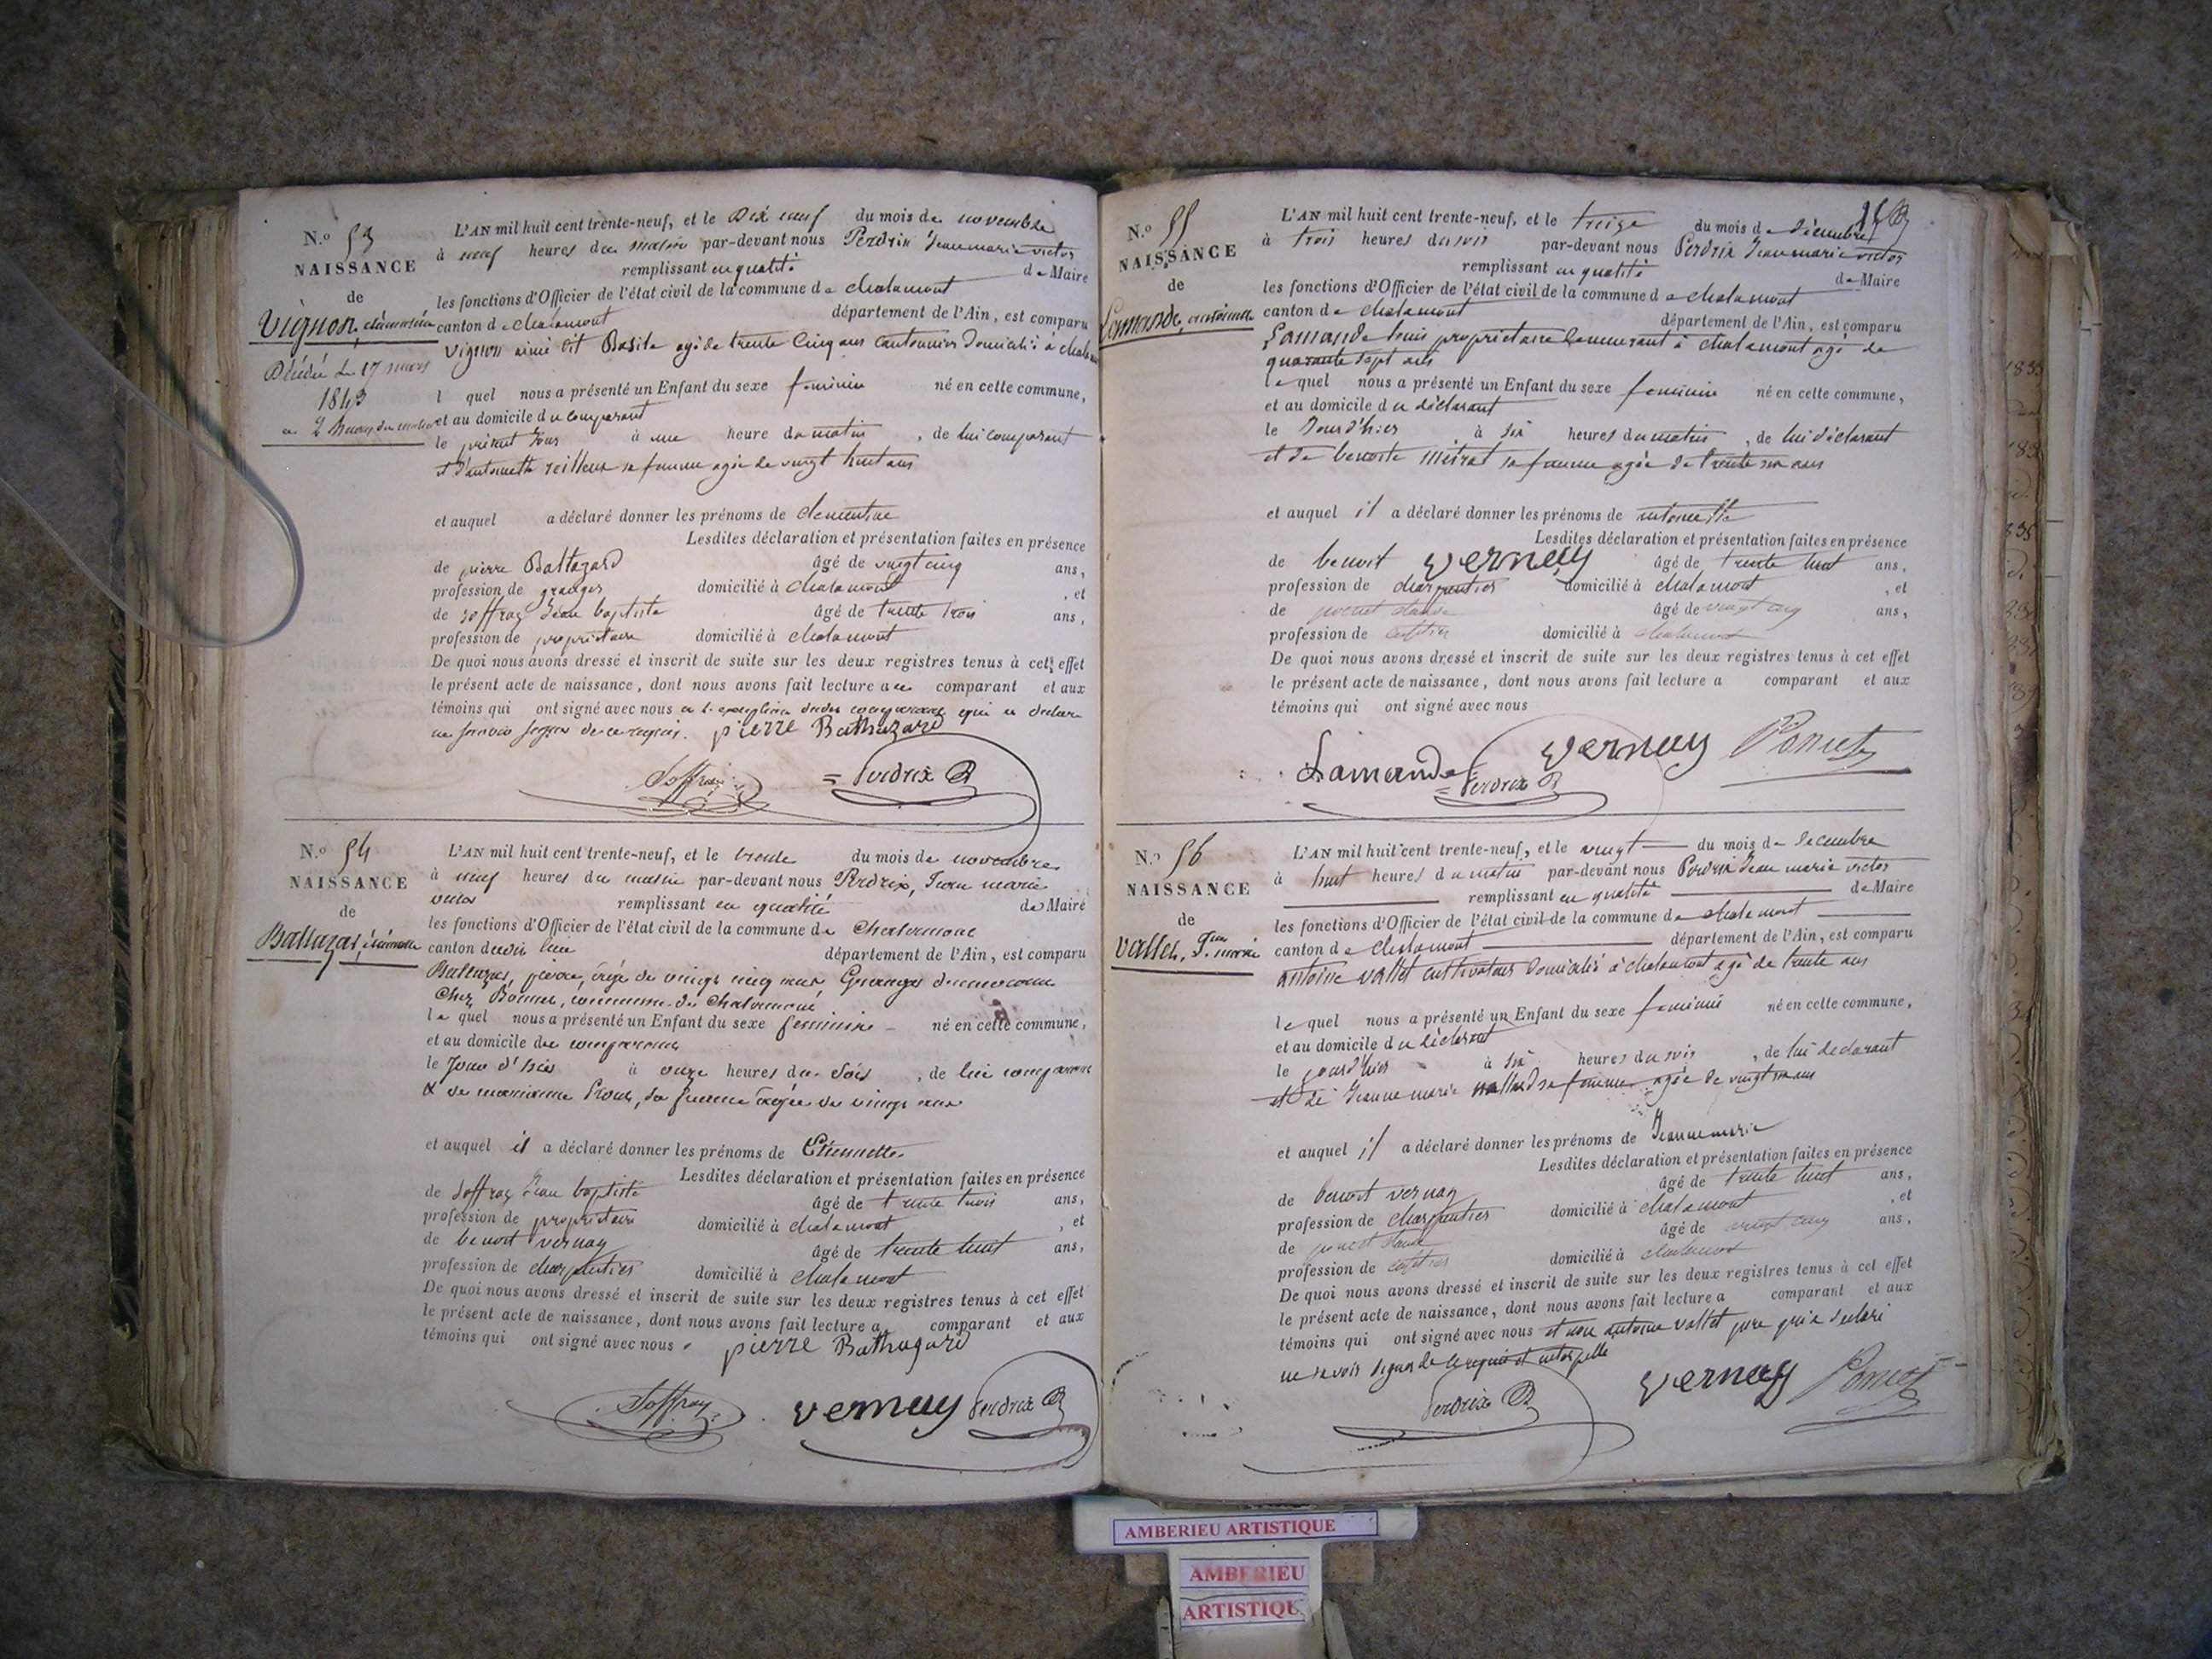 N.o 53
NAISSANCE
de
Vignon, clémentine
Décédé le 17 mars
1843
a 2 heures du matin
L'AN mil huit cent trente-neuf, et le Dix neuf du mois de novembre
à neuf heures du matin par-devant nous Perdrix Jean marie victor
remplissant en qualité de Maire
les fonctions d'Officier de l'état civil de la commune de chalamont
canton de chalamont département de l'Ain, est comparu
Vignon aimé dit Basile agé de trente Cinq ans cantonnier Domicilié à chalamont
l quel nous a présenté un Enfant du sexe feminin né en cette commune,
et au domicile du comparant
le présent Jour à une heure du matin , de lui comparant
et d'antoinette teilleux sa femme agée de vingt huit ans
et auquel a déclaré donner les prénoms de clementine
Lesdites déclaration et présentation faites en présence
de pierre Baltazard âgé de vingt cinq ans,
profession de granger domicilié à chalamont , et
de soffray Jean baptiste âgé de trente trois ans,
profession de propriétaire domicilié à chalamont
De quoi nous avons dressé et inscrit de suite sur les deux registres tenus à cet effet
le présent acte de naissance, dont nous avons fait lecture au comparant et aux
témoins qui ont signé avec nous a l'exception dudit comparant qui a déclaré
ne savoir signer de ce requis. pierre Balthazard
Soffray Perdrix
N.o 54
NAISSANCE
de
Baltazar, étiennette
L'AN mil huit cent trente-neuf, et le trente du mois de novembre
à neuf heures du matin par-devant nous Perdrix, Jean marie
victor remplissant en qualité de Maire
les fonctions d'Officier de l'état civil de la commune de Chalamont
canton dudit lieu département de l'Ain, est comparu
Baltazar, pierre, âgé de vingt cinq ans Granger demeurant
Chez Bonnet, commune de Chalamont
le quel nous a présenté un Enfant du sexe feminin né en cette commune,
et au domicile du comparant
le Jour d'hier à onze heures du soir , de lui comparant
& de marianne , sa femme agée de vingt ans
et auquel il a déclaré donner les prénoms de Etiennette
Lesdites déclaration et présentation faites en présence
de Soffray Jean baptiste âgé de trente trois ans,
profession de propriétaire domicilié à chalamont , et
de benoit vernay âgé de trente huit ans,
profession de charpentier domicilié à chalamont
De quoi nous avons dressé et inscrit de suite sur les deux registres tenus à cet effet
le présent acte de naissance, dont nous avons fait lecture a comparant et aux
témoins qui ont signé avec nous. pierre Balthazard
Soffray vernay Perdrix
N.o 55
NAISSANCE
de
Lamande, antoinette
L'AN mil huit cent trente-neuf, et le treize du mois de décembre
à trois heures du soir par-devant nous Perdrix Jean marie victor
remplissant en qualité de Maire
les fonctions d'Officier de l'état civil de la commune de chalamont
canton de chalamont département de l'Ain, est comparu
Lamande louis propriétaire demeurant à chalamont agé de
quarante sept ans
le quel nous a présenté un Enfant du sexe feminin né en cette commune,
et au domicile du déclarant
le Jour d'hier à six heures du matin , de lui déclarant
et de benoite mérat sa femme agée de trente six ans
et auquel il a déclaré donner les prénoms de antoinette
Lesdites déclaration et présentation faites en présence
de benoit vernay âgé de trente huit ans,
profession de charpentier domicilié à chalamont , et
de poncet claude âgé de vingt cinq ans,
profession de cafetier domicilié à chalamont
De quoi nous avons dressé et inscrit de suite sur les deux registres tenus à cet effet
le présent acte de naissance, dont nous avons fait lecture a comparant et aux
témoins qui ont signé avec nous
Lamande vernay Poncet
Perdrix
N.o 56
NAISSANCE
de
Vallet, Jne marie
L'AN mil huit cent trente-neuf, et le vingt du mois de decembre
à huit heures du matin par-devant nous Perdrix Jean marie victor
remplissant en qualité de Maire
les fonctions d'Officier de l'état civil de la commune de chalamont
canton de Chalamont département de l'Ain, est comparu
antoine vallet cultivateur Domicilié à chalamont agé de trente ans
le quel nous a présenté un Enfant du sexe feminin né en cette commune,
et au domicile du déclarant
le jour d'hier à six heures du soir , de lui declarant
et de Jeanne marie sa femme agée de vingt ans
et auquel il a déclaré donner les prénoms de Jeanne marie
Lesdites déclaration et présentation faites en présence
de benoit vernay âgé de trente huit ans,
profession de charpentier domicilié à chalamont , et
de poncet claude âgé de vingt cinq ans,
profession de cafetier domicilié à chalamont
De quoi nous avons dressé et inscrit de suite sur les deux registres tenus à cet effet
le présent acte de naissance, dont nous avons fait lecture a comparant et aux
témoins qui ont signé avec nous et non antoine vallet pere qui a declaré
ne savoir signer de ce requis et interpellé
vernay Poncet
Perdrix
AMBERIEU ARTISTIQUE
AMBERIEU
ARTISTIQUE